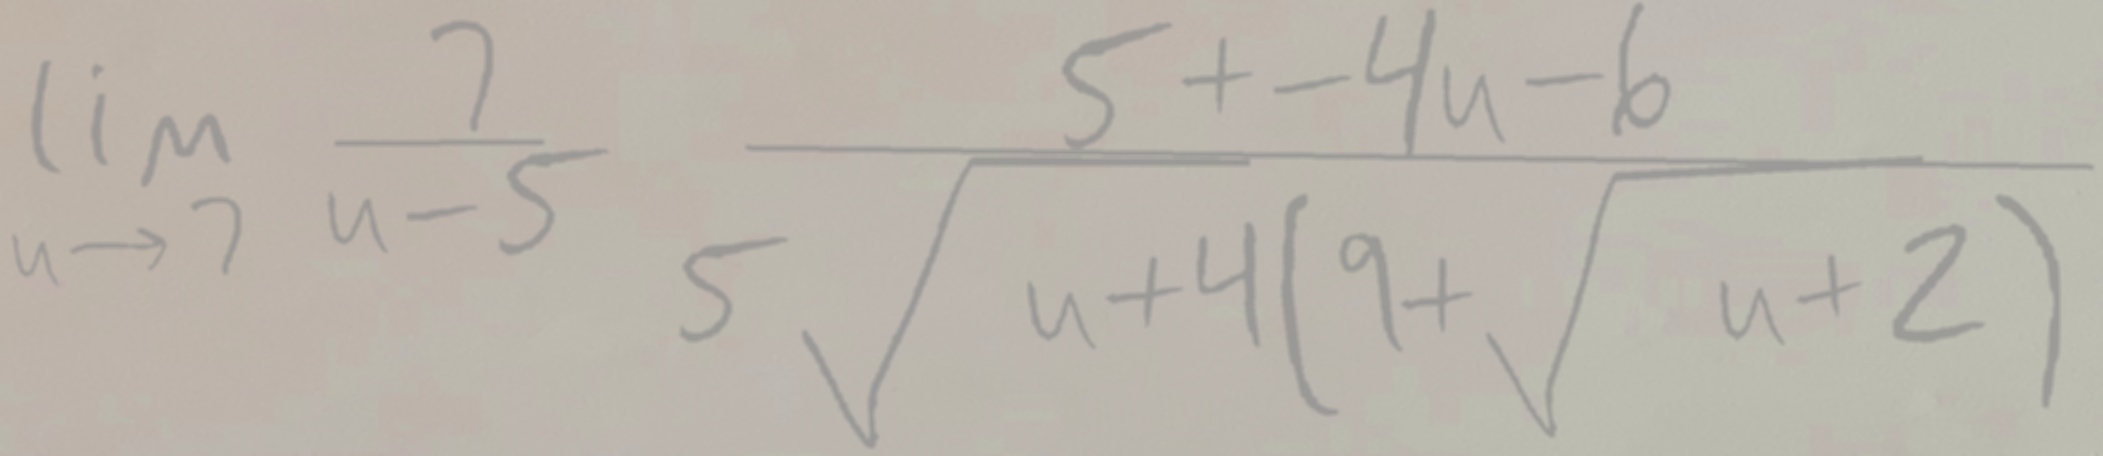 \lim_{u \to 7} \frac{7}{u-5} \frac{5+-4u-6}{5\sqrt{u+4}(9+\sqrt{u+2})}